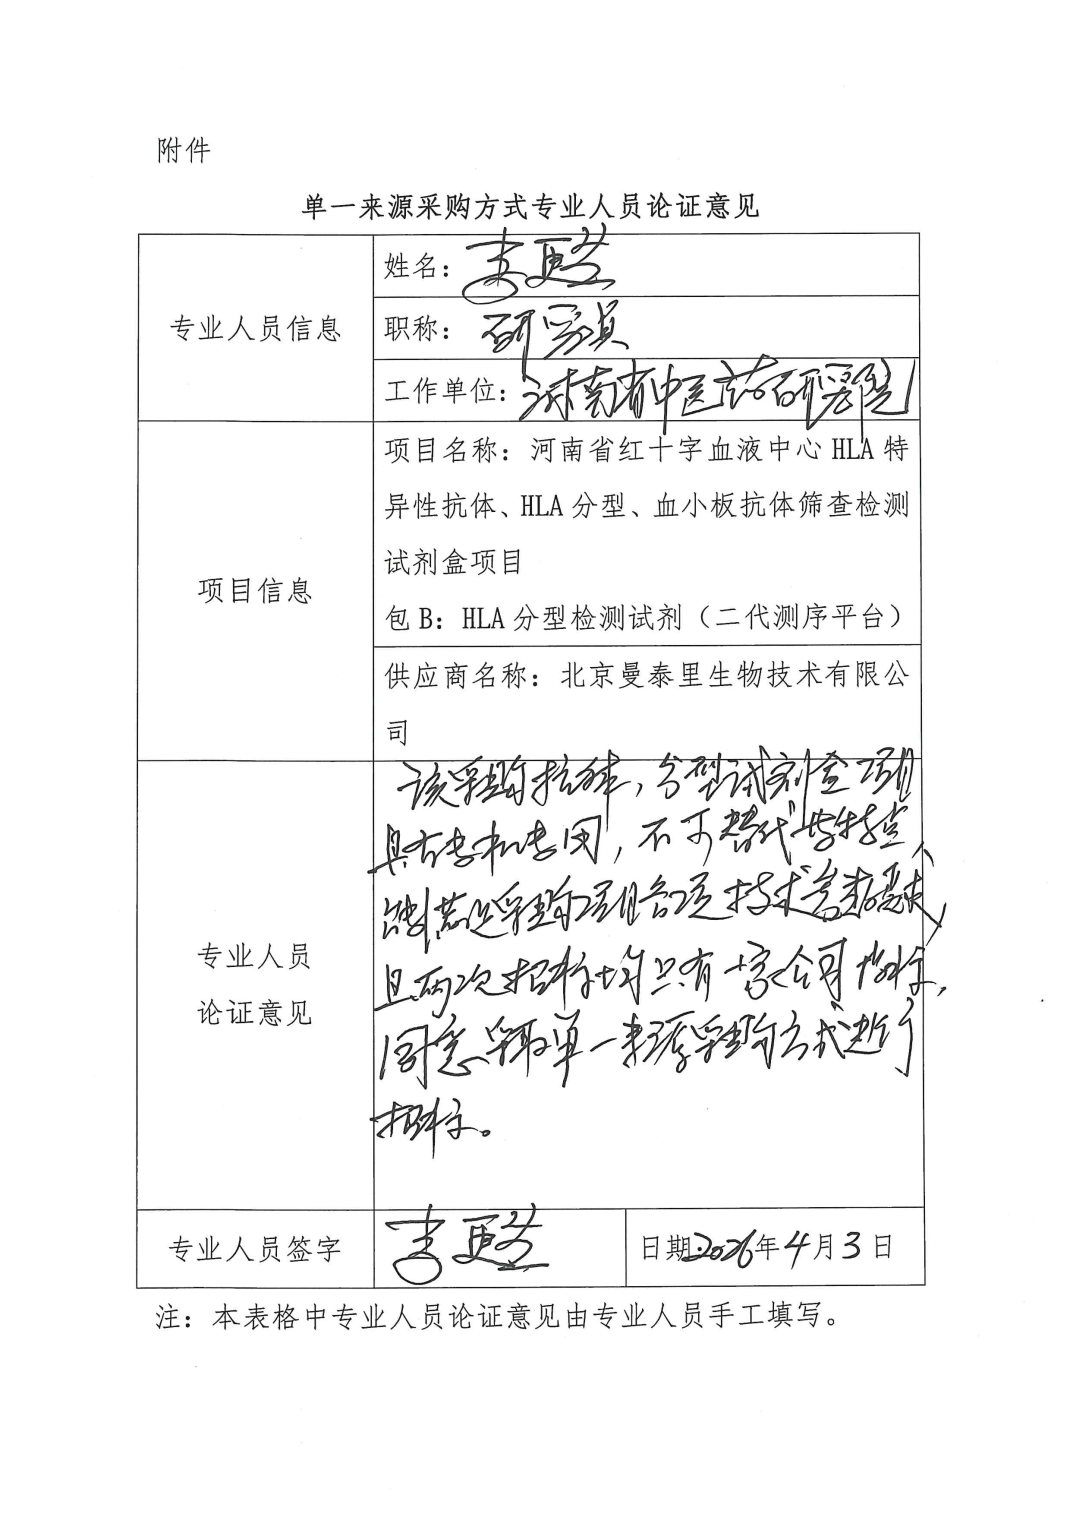 附件
单一来源采购方式专业人员论证意见
专业人员信息
姓名：李更生
职称：研究员
工作单位：河南省中医药研究院
项目信息
项目名称：河南省红十字血液中心HLA特
异性抗体、HLA分型、血小板抗体筛查检测
试剂盒项目
包B：HLA分型检测试剂（二代测序平台）
供应商名称：北京曼泰里生物技术有限公
司
专业人员
论证意见
该采购抗体，分型试剂盒项目
具有专机专用，不可替代等特点，
能满足采购项目各项技术参数要求，
且两次招标均只有一家公司投标，
同意采取单一来源采购方式进行
招标。
专业人员签字
李更生
日期：2026年4月3日
注：本表格中专业人员论证意见由专业人员手工填写。